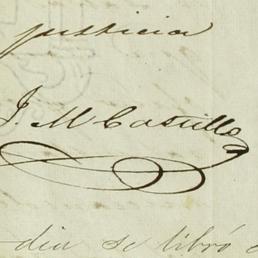 justicia
J. M Castillo
dia se libró